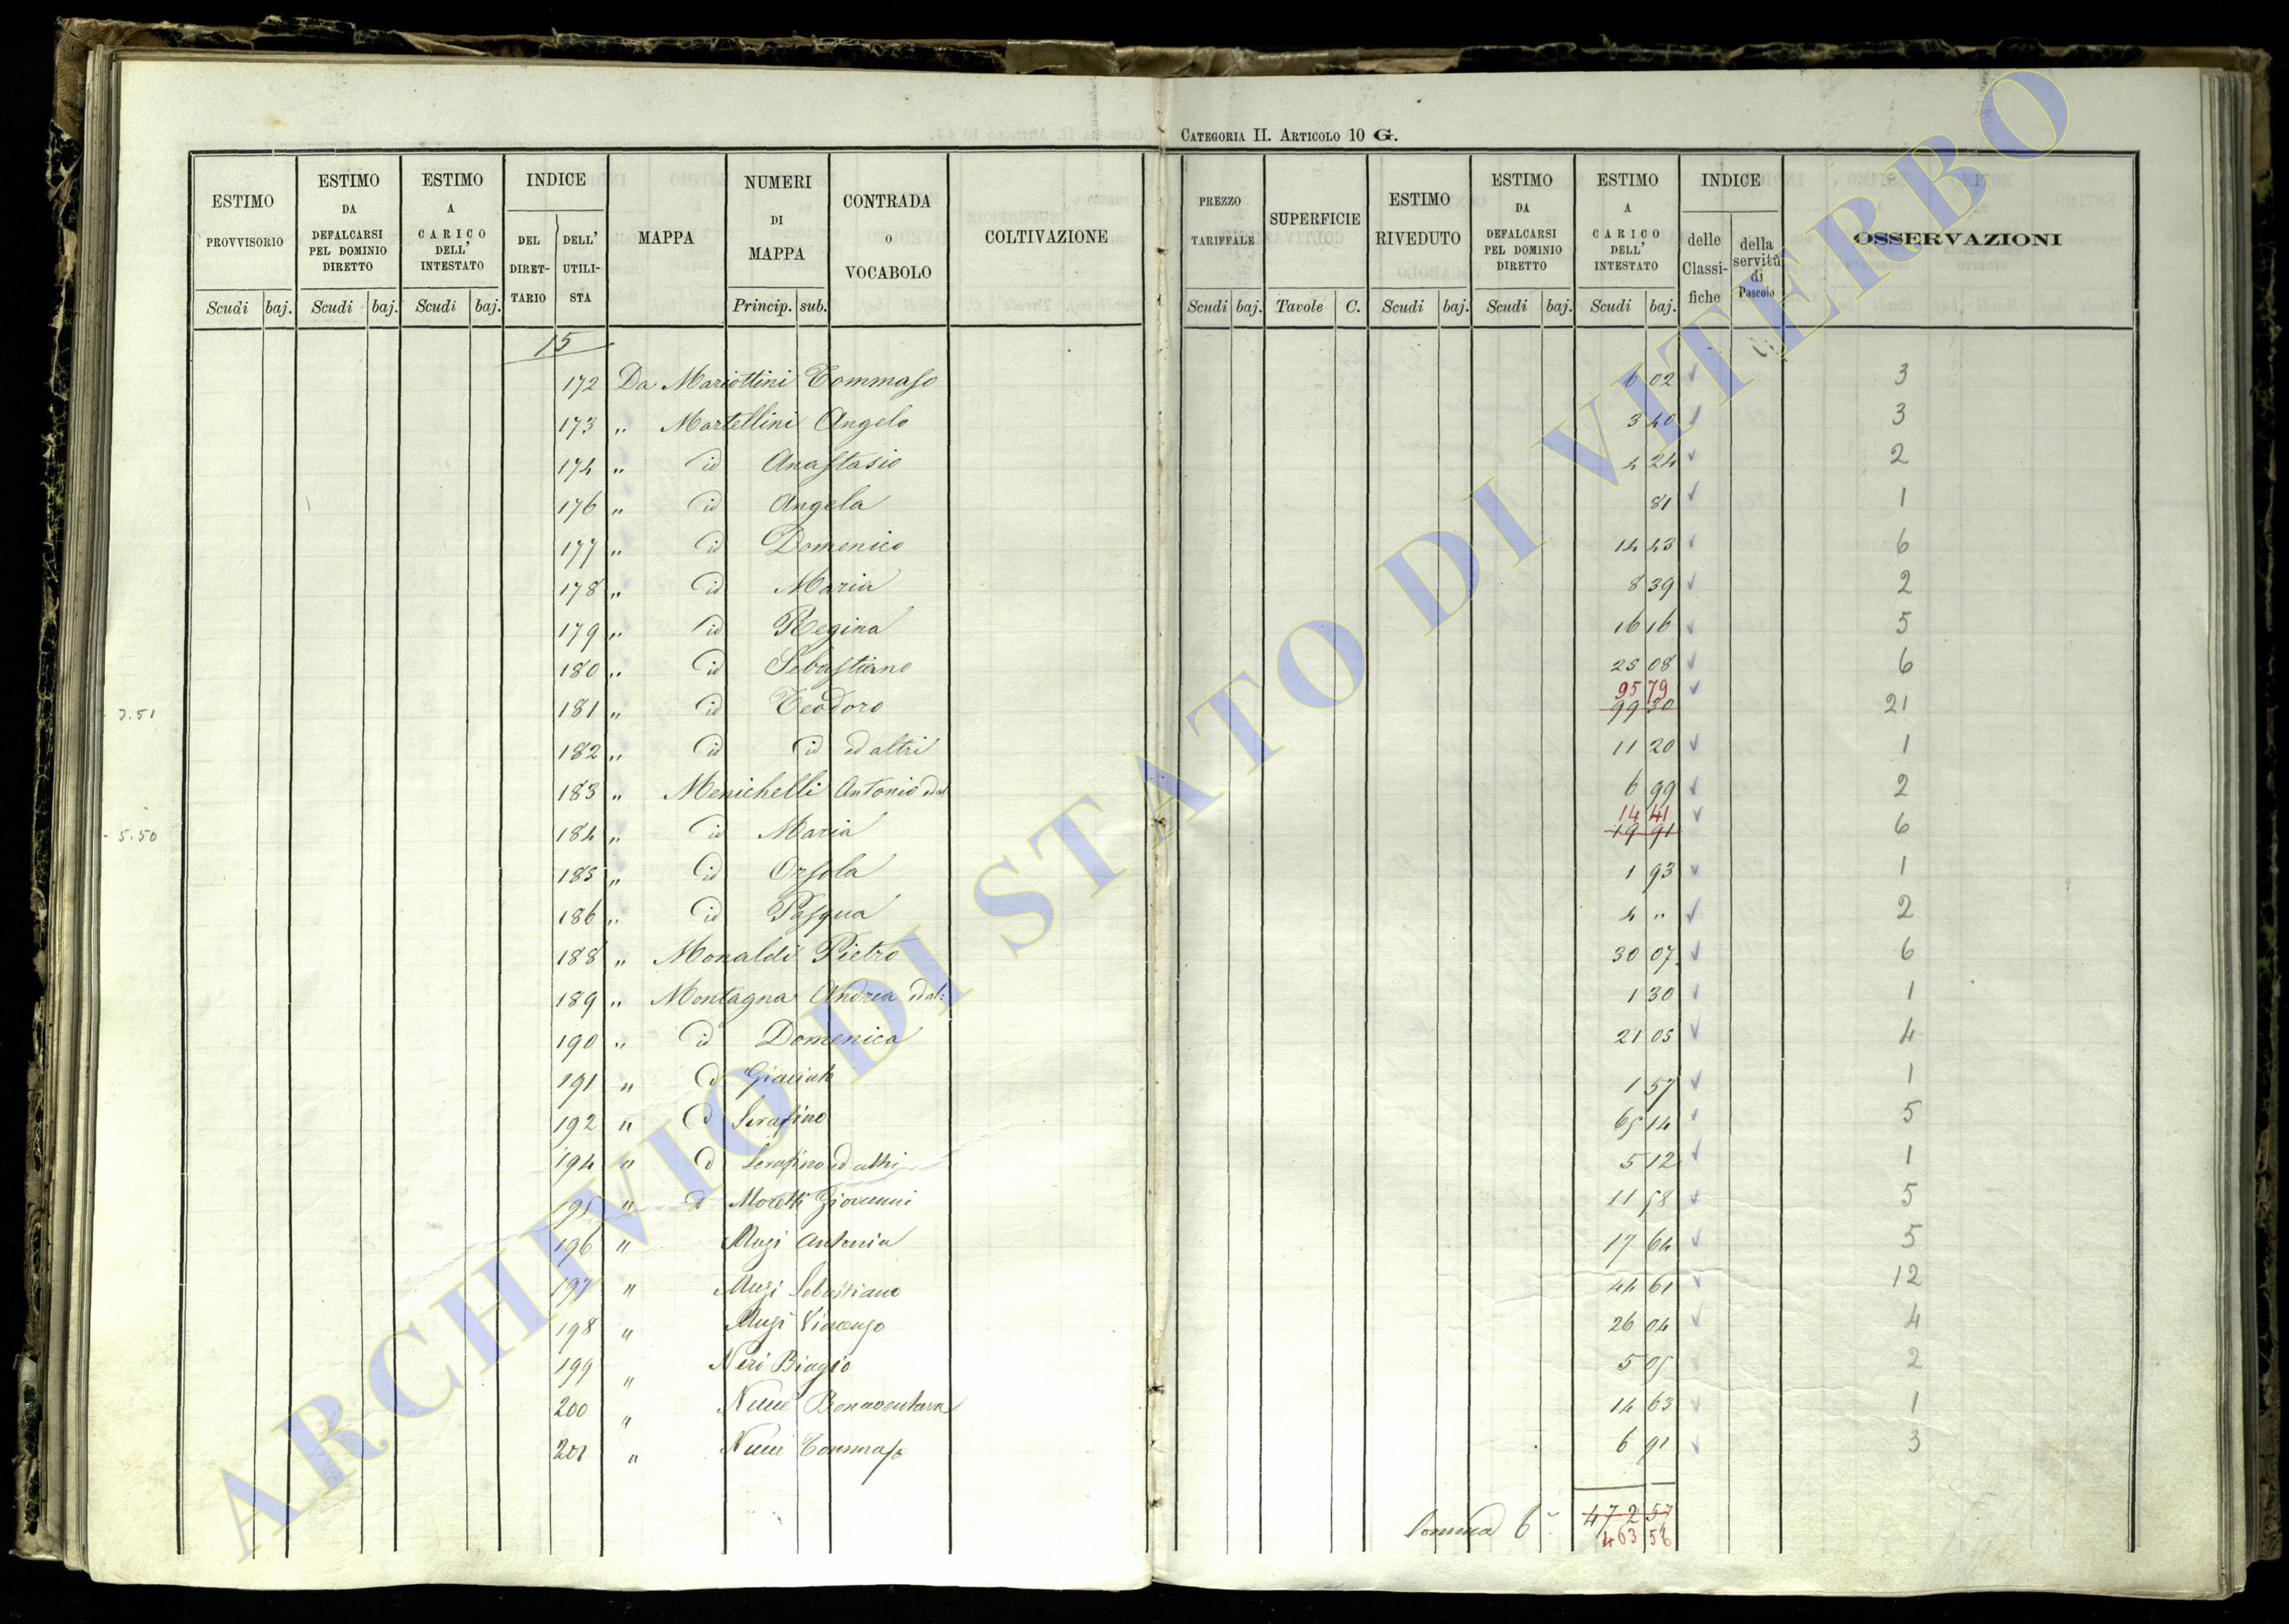 CATEGORIA II. ARTICOLO 10 G.
ESTIMO PROVVISORIO Scudi baj.
ESTIMO DA DEFALCARSI PEL DOMINIO DIRETTO Scudi baj.
ESTIMO A CARICO DELL' INTESTATO Scudi baj.
INDICE DEL DIRET-TARIO DELL' UTILI-STA
MAPPA
NUMERI DI MAPPA Princip. sub.
CONTRADA O VOCABOLO
COLTIVAZIONE
PREZZO TARIFFALE Scudi baj.
SUPERFICIE Tavole C.
ESTIMO RIVEDUTO Scudi baj.
ESTIMO DA DEFALCARSI PEL DOMINIO DIRETTO Scudi baj.
ESTIMO A CARICO DELL' INTESTATO Scudi baj.
INDICE delle Classi-fiche della servitù di Pascolo
OSSERVAZIONI
15
172 Da Mariottini Tommaso 6 02 3
173 " Martellini Angelo 3 40 3
174 " id Anastasio 4 24 2
176 " id Angela 81 1
177 " id Domenico 14 43 6
178 " id Maria 8 39 2
179 " id Regina 16 16 5
180 " id Sebastiano 25 08 6
95 79
3.51 181 " id Teodoro 99 30 21
182 " id id ed altri 11 20 1
183 " Menichelli Antonio ed al 6 99 2
14 41
5.50 184 " id Maria 19 91 6
185 " id Orsola 1 93 1
186 " id Pasqua 4 " 2
188 " Monaldi Pietro 30 07 6
189 " Montagna Andrea ed al: 1 30 1
190 " id Domenica 21 05 4
191 " d 1 57 1
192 " d Serafino 65 14 5
194 " d Serafino ed altri 5 12 1
195 " d Moretti Giovanni 11 58 5
196 " Mugi Antonia 17 64 5
197 " Mugi Sebastiano 44 61 12
198 " Mugi Vincenzo 26 04 4
199 " Neri Biagio 5 05 2
200 " Bonaventura 14 63 1
201 " Tommaso 6 91 3
Somma 6ª 472 57
463 56
ARCHIVIO DI STATO DI VITERBO